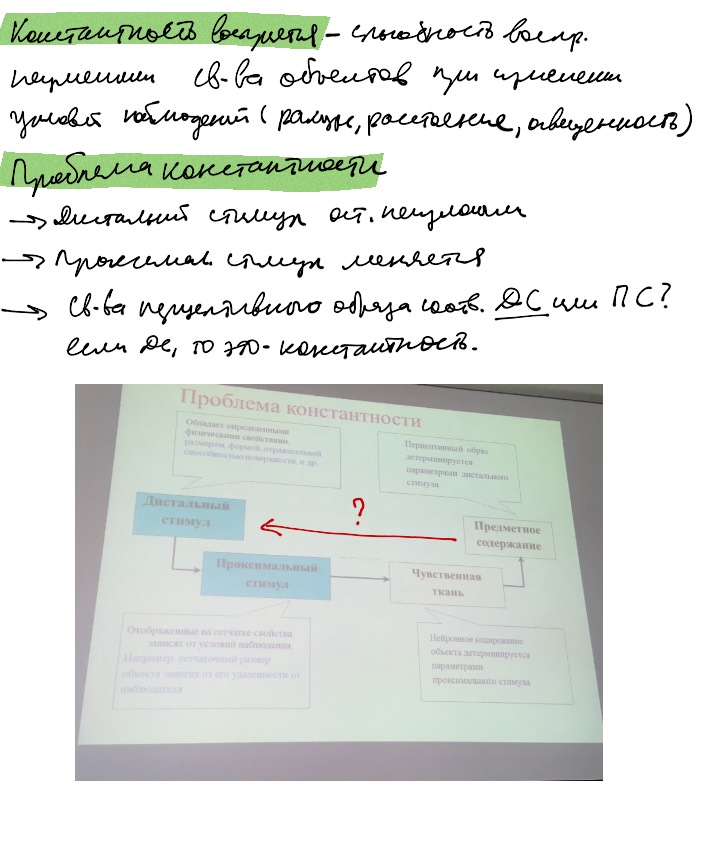 Константность восприятия – способность воспр.
неизменными св-ва объектов при изменении
условий наблюдений (ракурс, расстояние, освещенность)
Проблема константности
→ Дистальный стимул ост. неизменным
→ Проксимал. стимул меняется
→ Св-ва перцептивного образа соотв. ДС или ПС?
если ДС, то это - константность.
Проблема константности
Обладает определенными
физическими свойствами:
размером, формой, отражательной
способностью поверхности, и др.
Перцептивный образ
детерминируется
параметрами дистального
стимула
?
Дистальный
стимул
Предметное
содержание
Проксимальный
стимул
Чувственная
ткань
Отображенные на сетчатке свойства
зависят от условий наблюдения.
Например: сетчаточный размер
объекта зависит от его удаленности от
наблюдателя
Нейронное кодирование
объекта детерминируется
параметрами
проксимального стимула